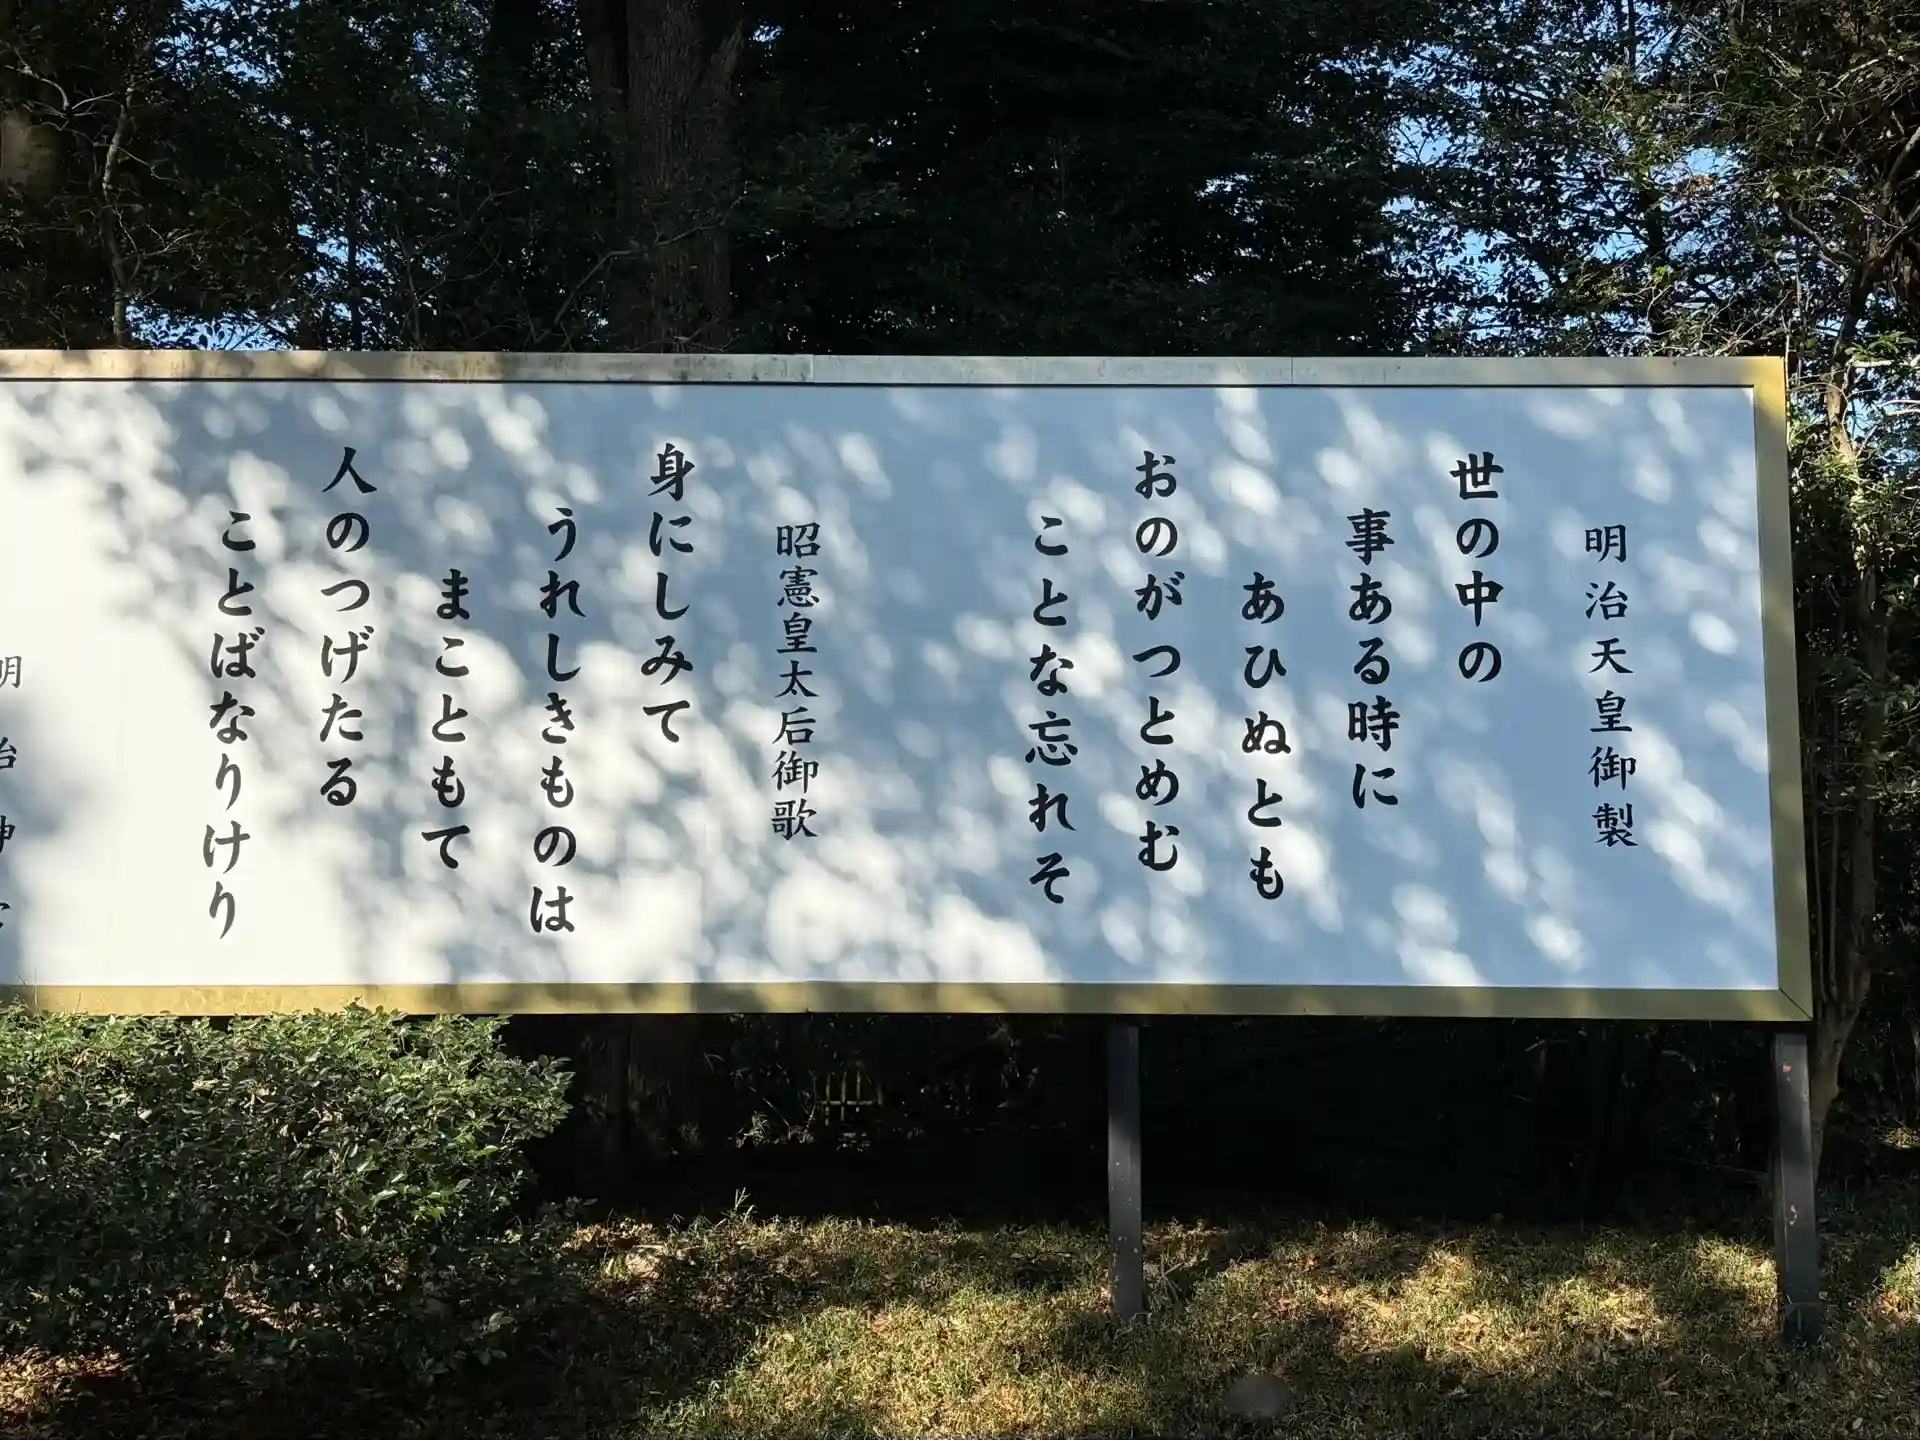 明治天皇御製
世の中の
事ある時に
あひぬとも
おのがつとめむ
ことな忘れそ
昭憲皇太后御歌
身にしみて
うれしきものは
まこともて
人のつげたる
ことばなりけり
明治神